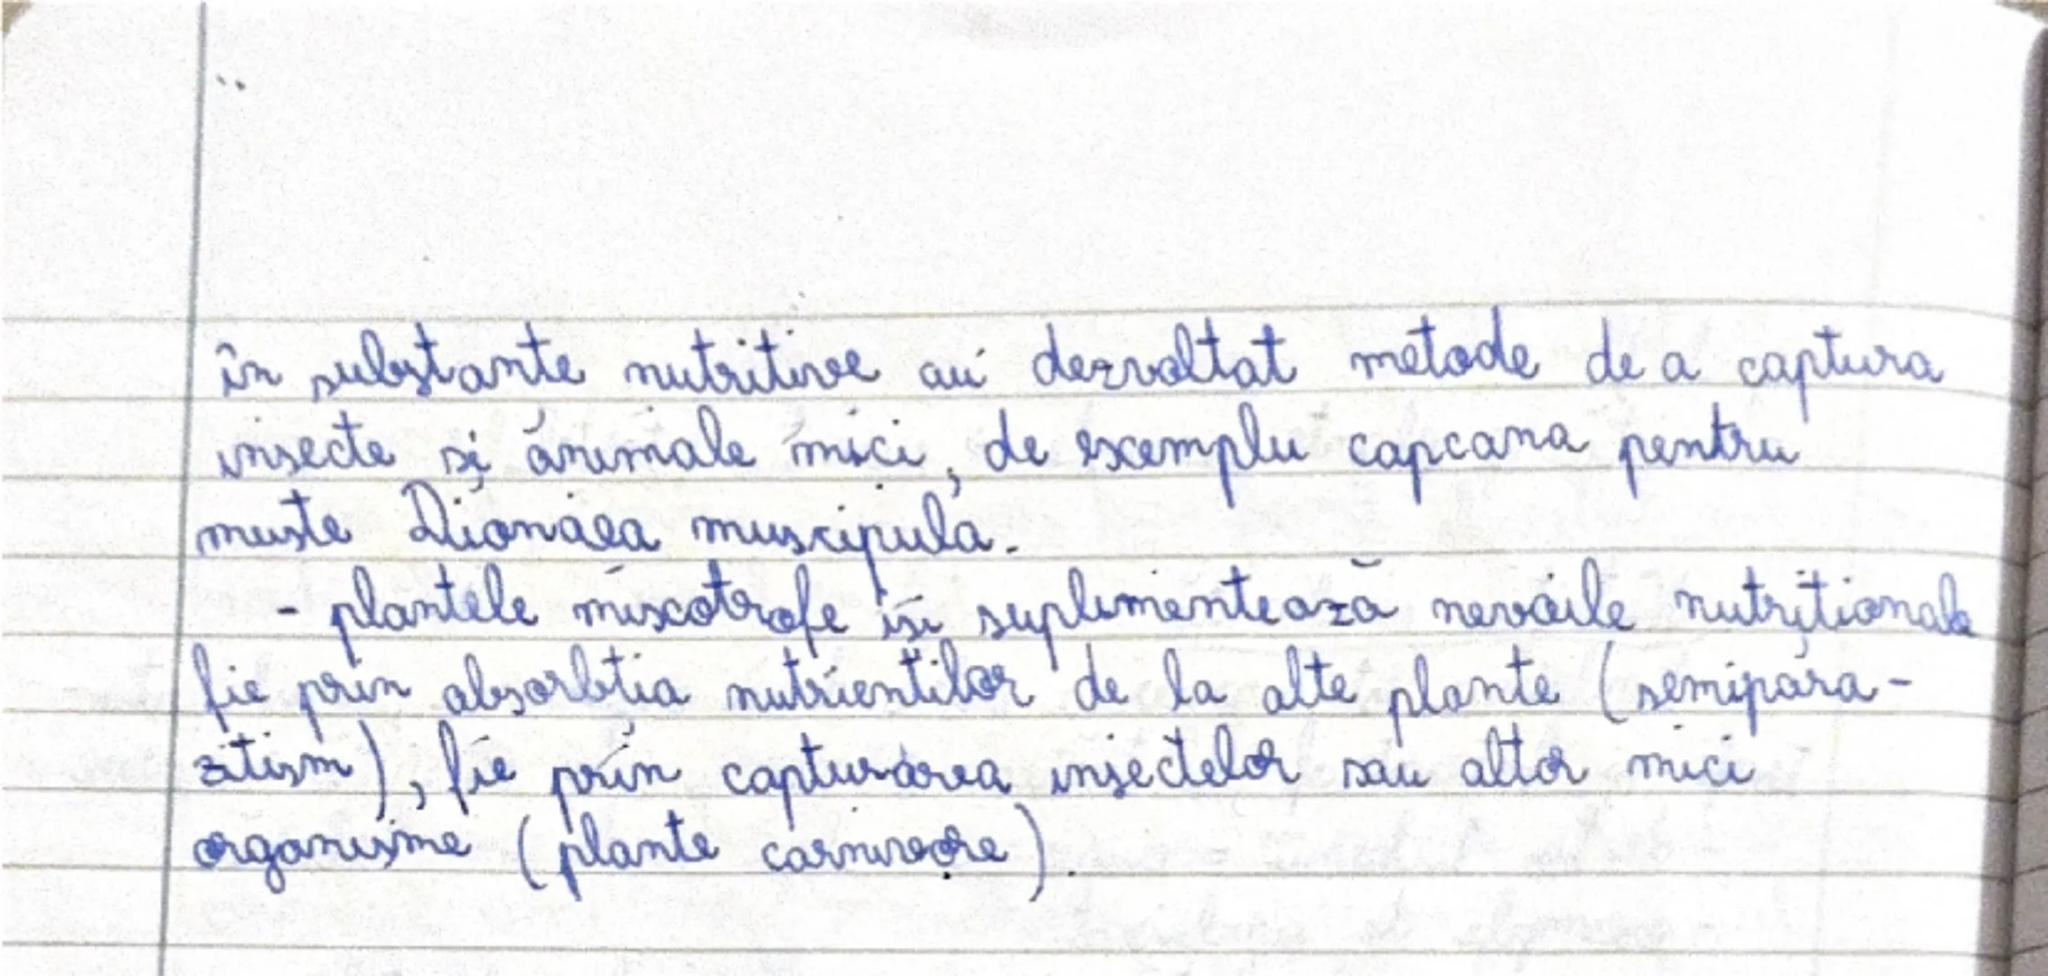 în substante nutritive au dezvoltat metode de a captura
insecte și animale mici, de exemplu capcana pentru
muste Dionaea muscipula.
- plantele mixotrofe isi suplimentează nevoile nutriționale
fie prin absorbtia nutrientilor de la alte plante (semipara-
zitism), fie prin capturarea insectelor sau altor mici
organisme (plante carnivore).